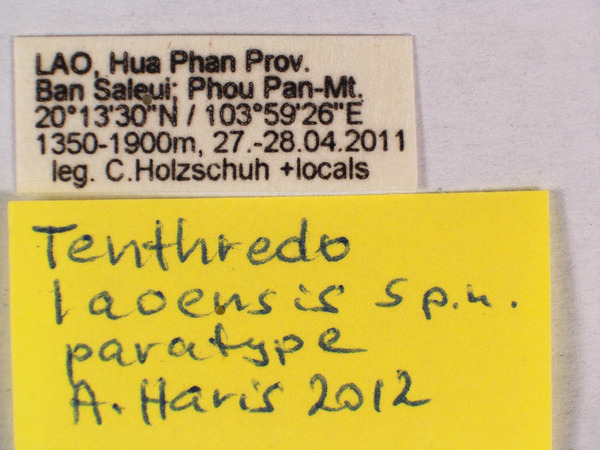 LAO, Hua Phan Prov.
Ban Saleui; Phou Pan-Mt.
20°13'30"N / 103°59'26"E
1350-1900m, 27.-28.04.2011
leg. C.Holzschuh +locals
Tenthredo
laoensis sp.n.
paratype
A. Haris 2012